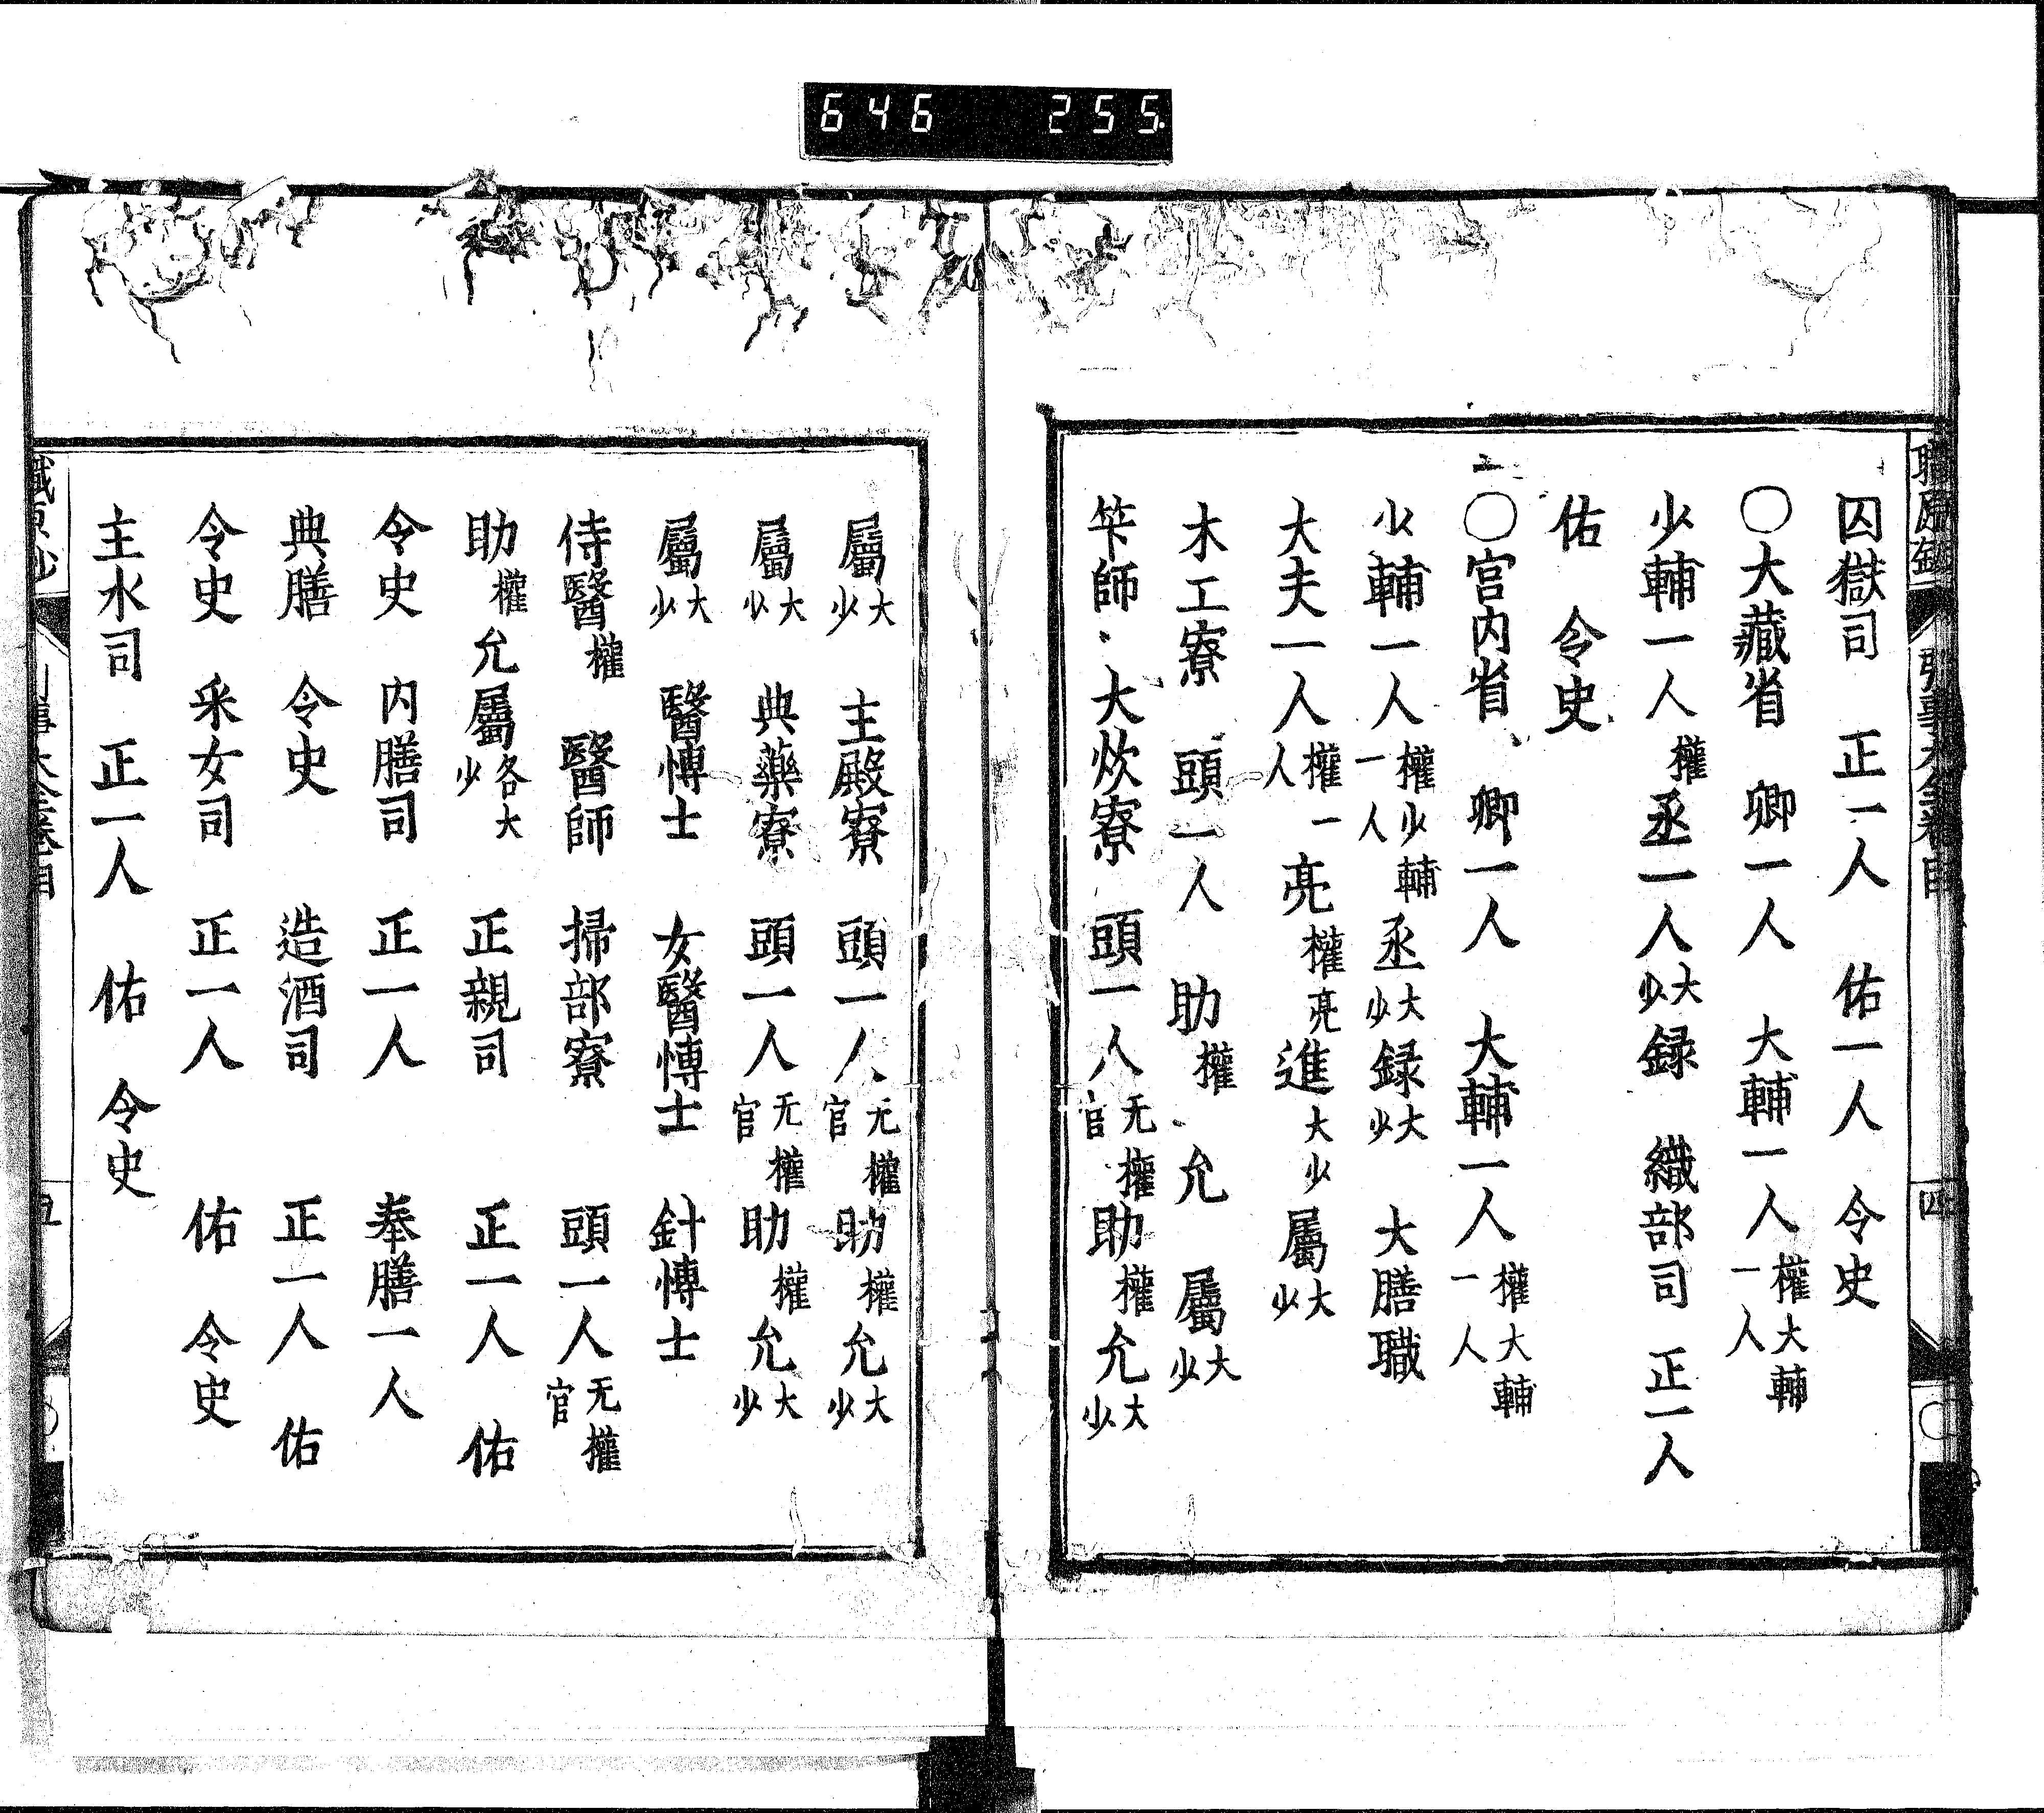 646 255
囚獄司 正一人 佑一人 令史
〇大藏省 卿一人 大輔一人權大輔一人
少輔一人權丞一人大少録 織部司 正一人
佑 令史
〇宮内省 卿一人 大輔一人權大輔一人
少輔一人權少輔一人丞大少録大少 大膳職
大夫一人權一人亮權亮進大少屬大少
木工寮 頭一人 助權 允 屬大少
笇師 大炊寮 頭一人无官權助權允大少
四
屬大少 主殿寮 頭一人无官權助權允大少
屬大少 典藥寮 頭一人无官權助權允大少
屬大少 醫愽士 女醫愽士 針愽士
侍醫權 醫師 掃部寮 頭一人无官權
助權允屬各大少 正親司 正一人 佑
令史 内膳司 正一人 奉膳一人
典膳 令史 造酒司 正一人 佑
令史 采女司 正一人 佑 令史
主水司 正一人 佑 令史